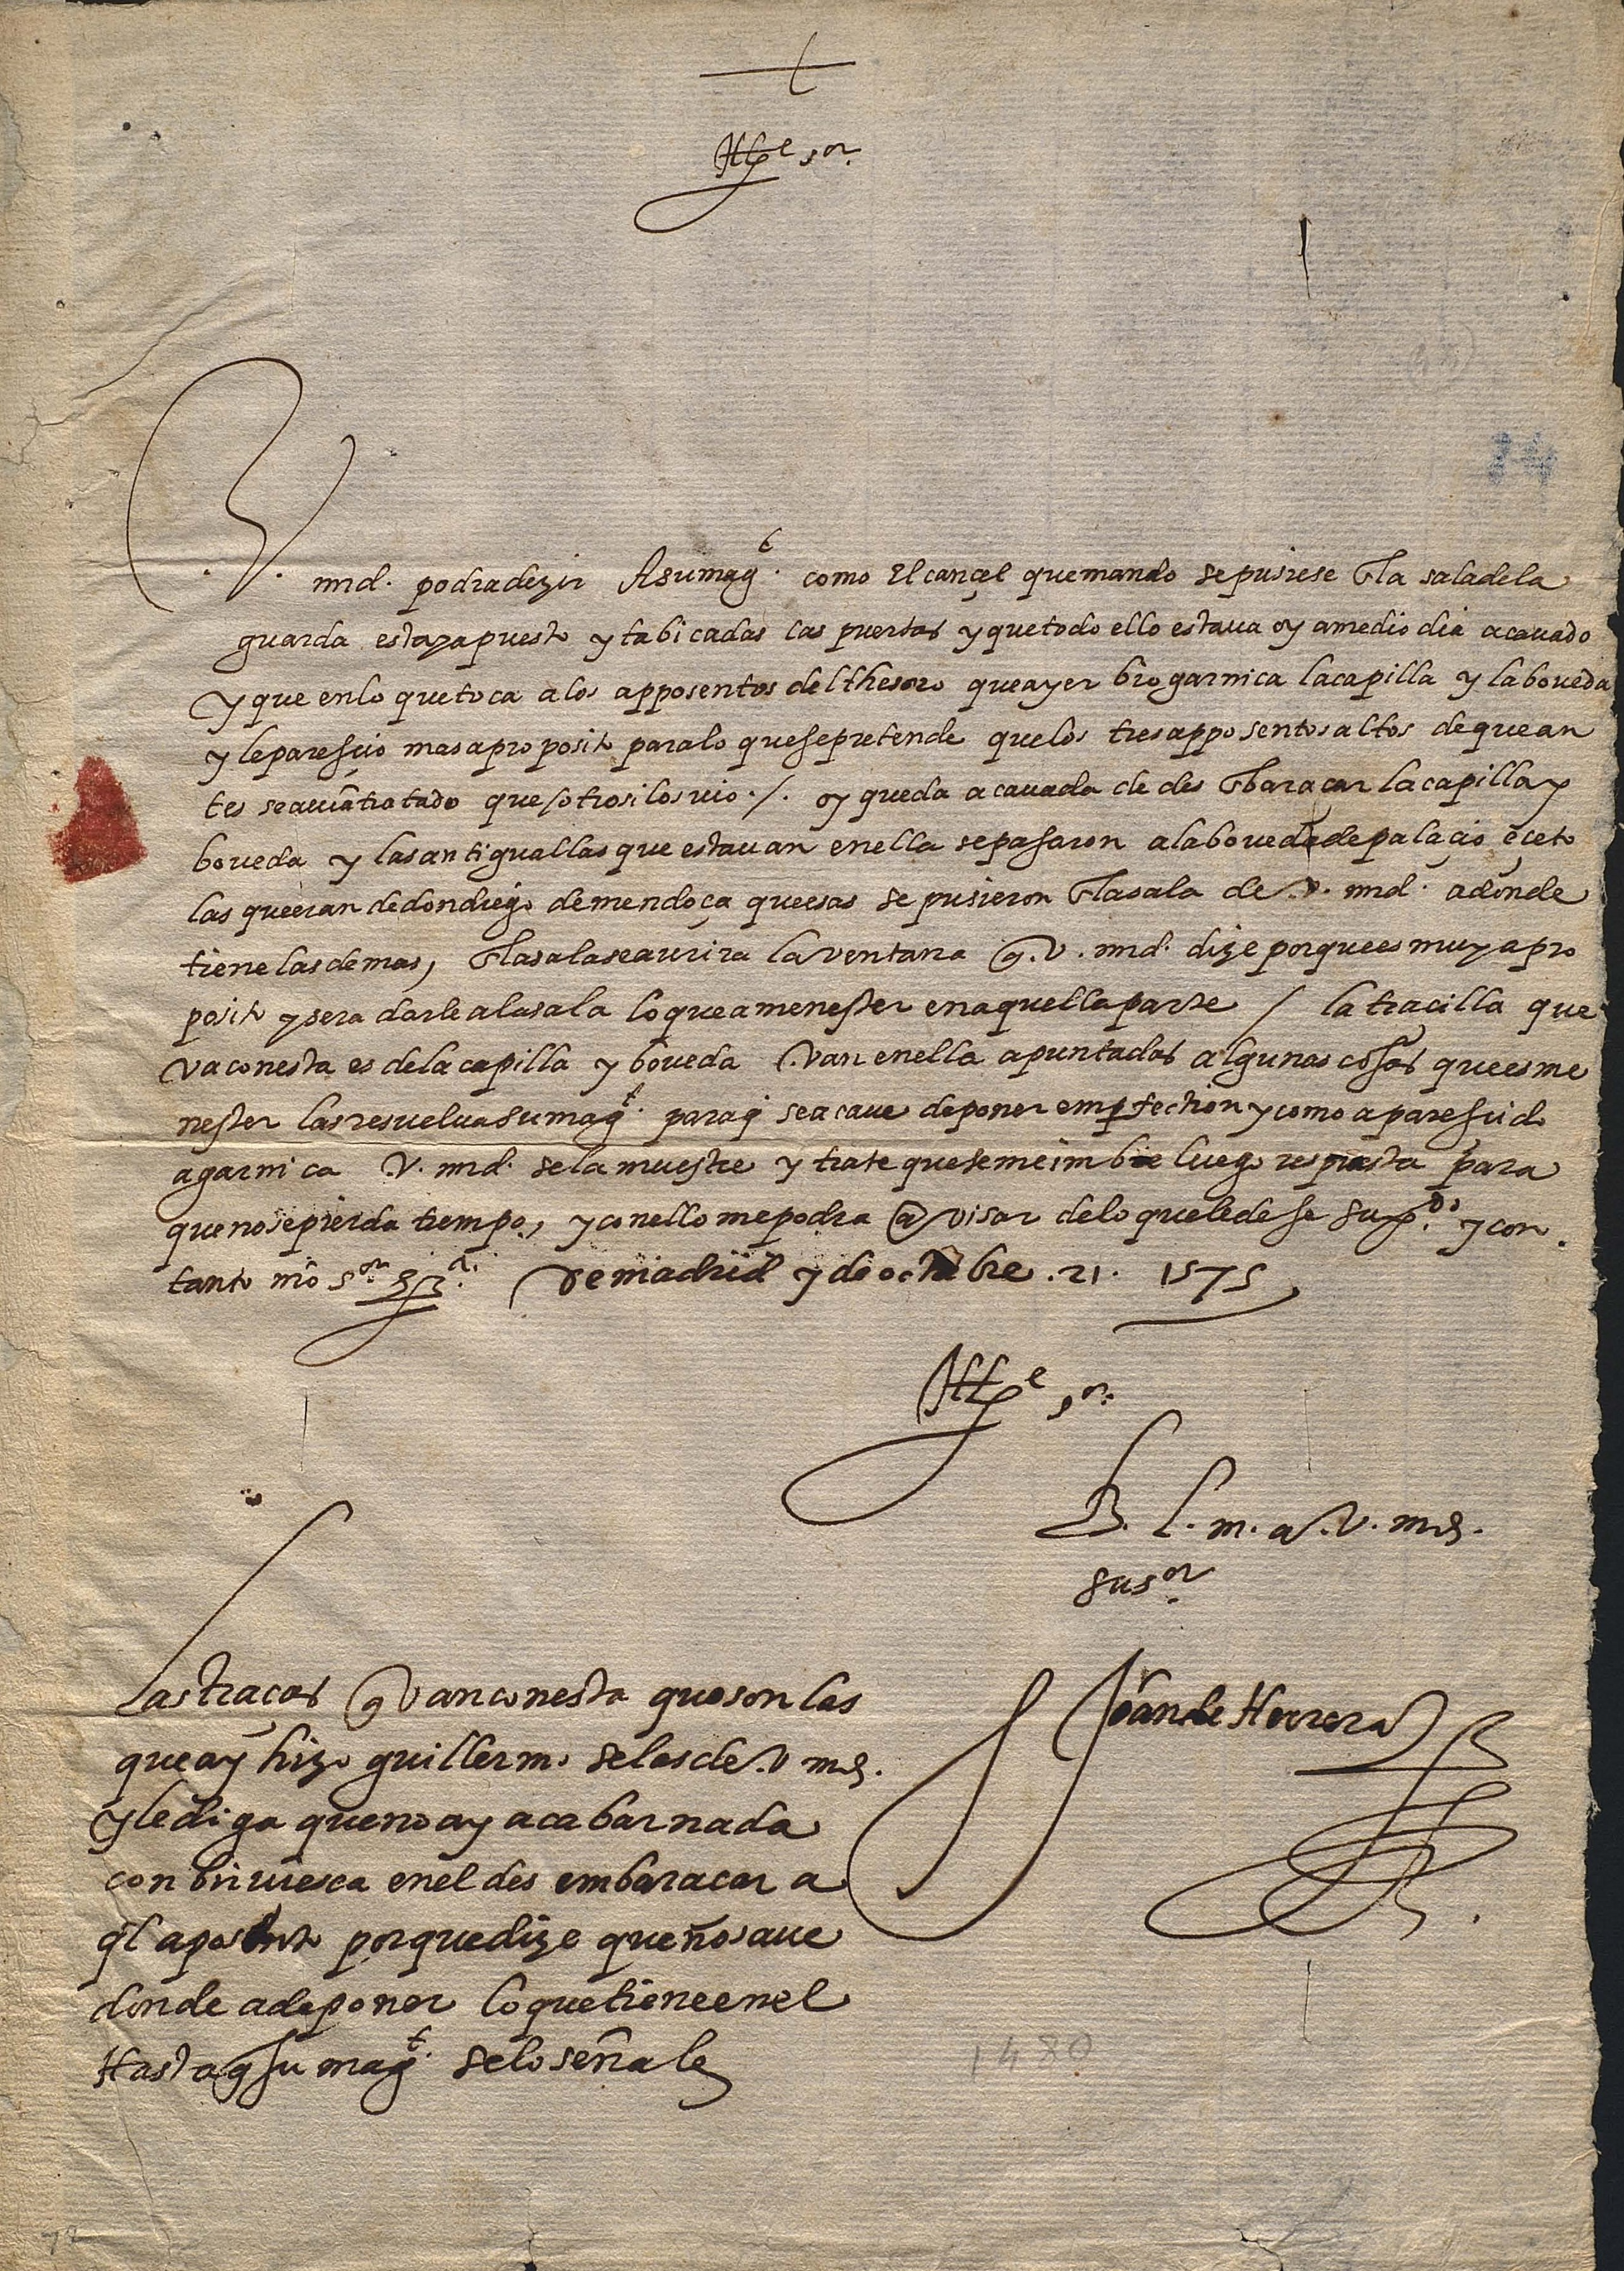 Ille sor.
14
V. md. podra dezir A su magt. como El cançel que mando se pusiese En la sala de la
guarda esta ya puesto y tabicadas las puertas y que todo ello estaua oy a medio dia acauado
y que en lo que toca a los apposentos del thesoro que ayer bio garnica la capilla y la boueda
y le paresçio mas a proposito para lo que se pretende que los tres apposentos altos de que an
tes se auiã tratado que esotros i los uio ./. oy queda acauada de desEnbaraçar la capilla y
boueda y las antiguallas que estauan en ella se pasaron a la boueda de palaçio eçeto
las que eran de don diego de mendoça que esas se pusieron En la sala de V. md. adonde
tiene las demas, En la sala se aurira la ventana q. V. md. dize porque es muy a pro
posito y sera darle a la sala lo que a menester en aquella parte / la tracilla que
va con esta es de la capilla y boueda Van en ella apuntadas algunas cosas que es me
nester las resuelua su magt. para q̃ se acaue de poner em pfection y como a paresçido
a garnica V. md. se la muestre y trate que se me imbie luego respuesta para
que no se pierda tiempo, y con ello me podra avisar de lo que le de se su p.do y con
tanto nrõ sor. De madrid y de octubre .21. 1575
Ille sor.
B. l. m. a .V. md.
su sor.
Joan de Herrera
Las traças q̃ Van con esta que son las
que ay hizo guillermo se las de .V md.
y le diga que no ay acabar nada
con briuiesca en el desembaraçar a
ql aposento porque dize que no saue
donde a de poner lo que tiene en el
Hasta q su magt. se lo señale
1480
72